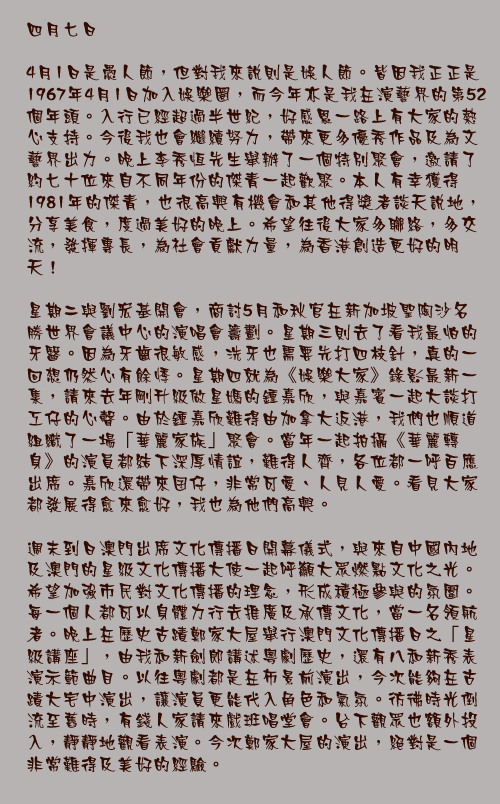 四月七日
4月1日是愚人節，但對我來說則是娛人節。皆因我正正是
1967年4月1日加入娛樂圈，而今年亦是我在演藝界的第52
個年頭。入行已經超過半世紀，好感恩一路上有大家的熱
心支持。今後我也會繼續努力，帶來更多優秀作品及為文
藝界出力。晚上李秀恒先生舉辦了一個特別聚會，邀請了
約七十位來自不同年份的傑青一起歡聚。本人有幸獲得
1981年的傑青，也很高興有機會和其他得獎者談天說地，
分享美食，度過美好的晚上。希望往後大家多聯絡，多交
流，發揮專長，為社會貢獻力量，為香港創造更好的明
天！
星期二與劉宏基開會，商討5月和秋官在新加坡聖陶沙名
勝世界會議中心的演唱會籌劃。星期三則去了看我最怕的
牙醫。因為牙齒很敏感，洗牙也需要先打四枝針，真的一
回想仍然心有餘悸。星期四就為《娛樂大家》錄影最新一
集，請來去年剛升級做星媽的鍾嘉欣，與嘉賓一起大談打
工仔的心聲。由於鍾嘉欣難得由加拿大返港，我們也順道
組織了一場「華麗家族」聚會。當年一起拍攝《華麗轉
身》的演員都結下深厚情誼，難得人齊，各位都一呼百應
出席。嘉欣還帶來囝仔，非常可愛、人見人愛。看見大家
都發展得愈來愈好，我也為他們高興。
週末到日澳門出席文化傳播日開幕儀式，與來自中國內地
及澳門的星級文化傳播大使一起呼籲大眾燃點文化之光。
希望加強市民對文化傳播的理念，形成積極參與的氛圍。
每一個人都可以身體力行去推廣及承傳文化，當一名領航
者。晚上在歷史古蹟鄭家大屋舉行澳門文化傳播日之「星
級講座」，由我和新劍郎講述粵劇歷史，還有八和新秀表
演示範曲目。以往粵劇都是在布景前演出，今次能夠在古
蹟大宅中演出，讓演員更能代入角色和氣氛。彷彿時光倒
流至舊時，有錢人家請來戲班唱堂會。台下觀眾也額外投
入，靜靜地觀看表演。今次鄭家大屋的演出，絕對是一個
非常難得及美好的經驗。